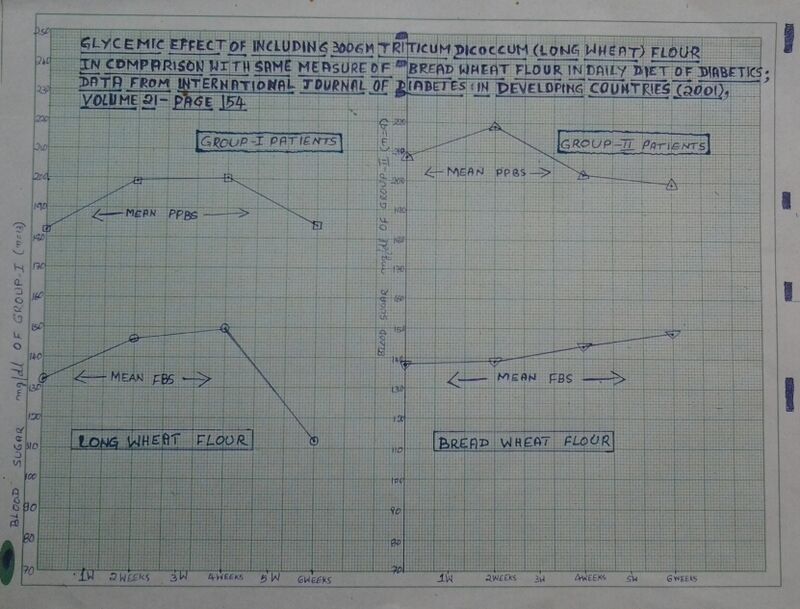 GLYCEMIC EFFECT OF INCLUDING 300GM TRITICUM DICOCCUM (LONG WHEAT) FLOUR
IN COMPARISON WITH SAME MEASURE OF BREAD WHEAT FLOUR IN DAILY DIET OF DIABETICS;
DATA FROM INTERNATIONAL JOURNAL OF DIABETES IN DEVELOPING COUNTRIES (2001),
VOLUME 21- PAGE 154
GROUP-I PATIENTS
MEAN PPBS
MEAN FBS
LONG WHEAT FLOUR
BLOOD SUGAR mg/dl OF GROUP-I
250
240
230
220
210
200
190
180
170
160
150
140
130
120
110
100
90
80
70
1W 2WEEKS 3W 4WEEKS 5W 6WEEKS
GROUP-II PATIENTS
MEAN PPBS
MEAN FBS
BREAD WHEAT FLOUR
BLOOD SUGAR mg/dl OF GROUP-II
210
200
190
180
170
160
150
140
130
120
110
100
90
80
70
1W 2WEEKS 3W 4WEEKS 5W 6WEEKS